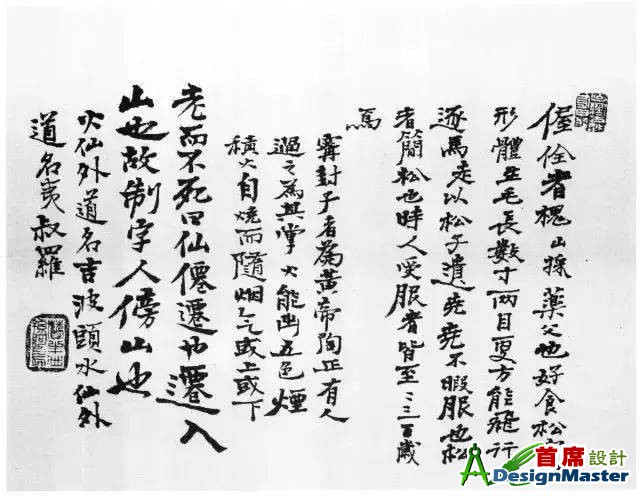 偓佺者槐山採藥父也好食松
形體生毛長數寸兩目更方能飛行
逐馬走以松子遺堯堯不暇服也松
者簡松也時人受服者皆至二三百歲
焉
甯封子者為黃帝陶正有人
過之為其掌火能出五色煙
積火自燒而隨烟气或上或下
老而不死曰仙僊遷也遷入
山也故制字人傍山也
火仙外道名吉波頭水仙外
道名夷叔羅
首席設計
DesignMaster